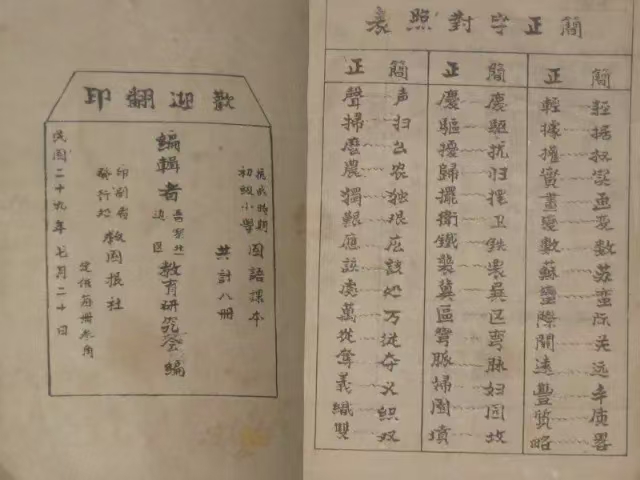 歡迎翻印
抗战時期
初級小學
國語課本
共計八冊
編輯者
边区
教育研究会 編
印刷者
發行处
救國报社
定價每冊叁角
民國二十九年七月二十日
簡正字對照表
簡 正
轻……輕
据……據
权……權
实……實
画……畫
变……變
数……數
苏……蘇
蛮……蠻
际……際
关……關
远……遠
丰……豐
质……質
畧……略
簡 正
庆……慶
驱……驅
扰……擾
归……歸
摆……擺
卫……衛
鉄……鐵
袭……襲
……冀
区……區
弯……彎
脉……脈
妇……婦
园……園
坟……墳
簡 正
声……聲
扫……掃
么……麼
农……農
独……獨
艰……艱
应……應
该……該
处……處
万……萬
从……從
夺……奪
义……義
织……織
双……雙